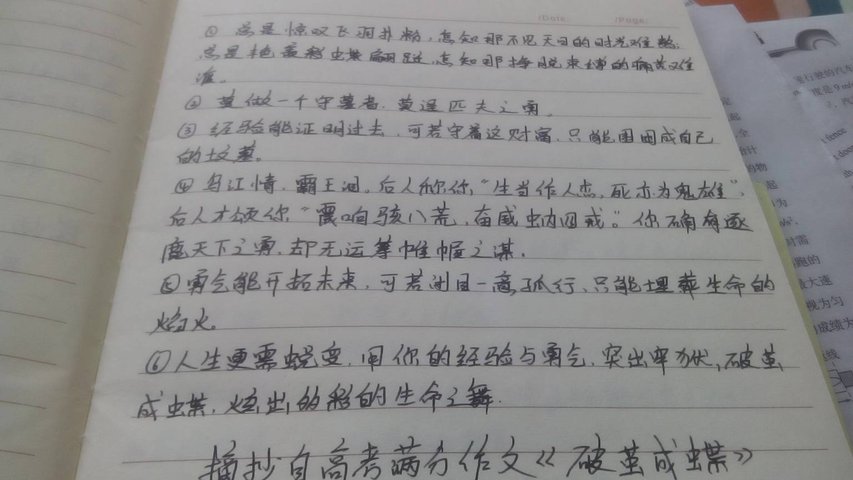 /Date /Page:
① 总是惊叹飞羽扑粉,怎知那不见天日的时光难熬;
总是艳羡彩虫蝶翩跹,怎知那挣脱束缚的痛苦艰
难。
② 莫做一个守墓者,莫逞匹夫之勇。
③ 经验能证明过去,可若守着这财富,只能困囿成自己
的坟墓。
④ 乌江情,霸王泪。后人称你,“生当作人杰,死亦为鬼雄”,
后人才颂你“震响骇八荒,奋威蚋四戎。”你确有逐
鹿天下之勇,却无运筹帷幄之谋.
⑤ 勇气能开拓未来,可若刚目一意孤行,只能埋葬生命的
焰火。
⑥人生更需蜕变,用你的经验与勇气,突出牢狱,破茧
成蝶,炫出多彩的生命之舞.
摘抄自高考满分作文《破茧成蝶》